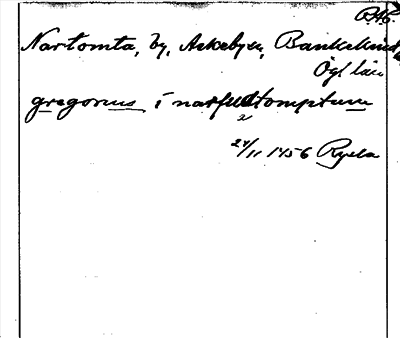 RAp.
Nartomta, by, Askeby sn, Bankekind
Ögl län
gregorius i narfuetomptum
24/11 1456 Ryela